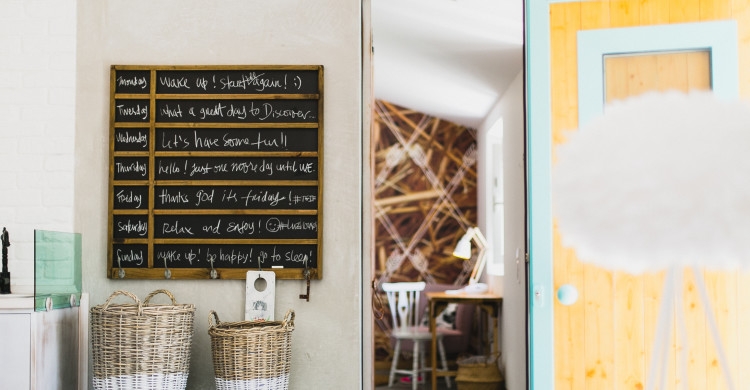 Monday wake up! start the again! :)
Tuesday what a great day to Discover...
Wednesday Let's have some fun!!
Thursday hello! just one more day until WE.
Friday thanks god its friday! #TGIF
Saturday Relax and enjoy!
Sunday wake up! be happy! go to sleep!